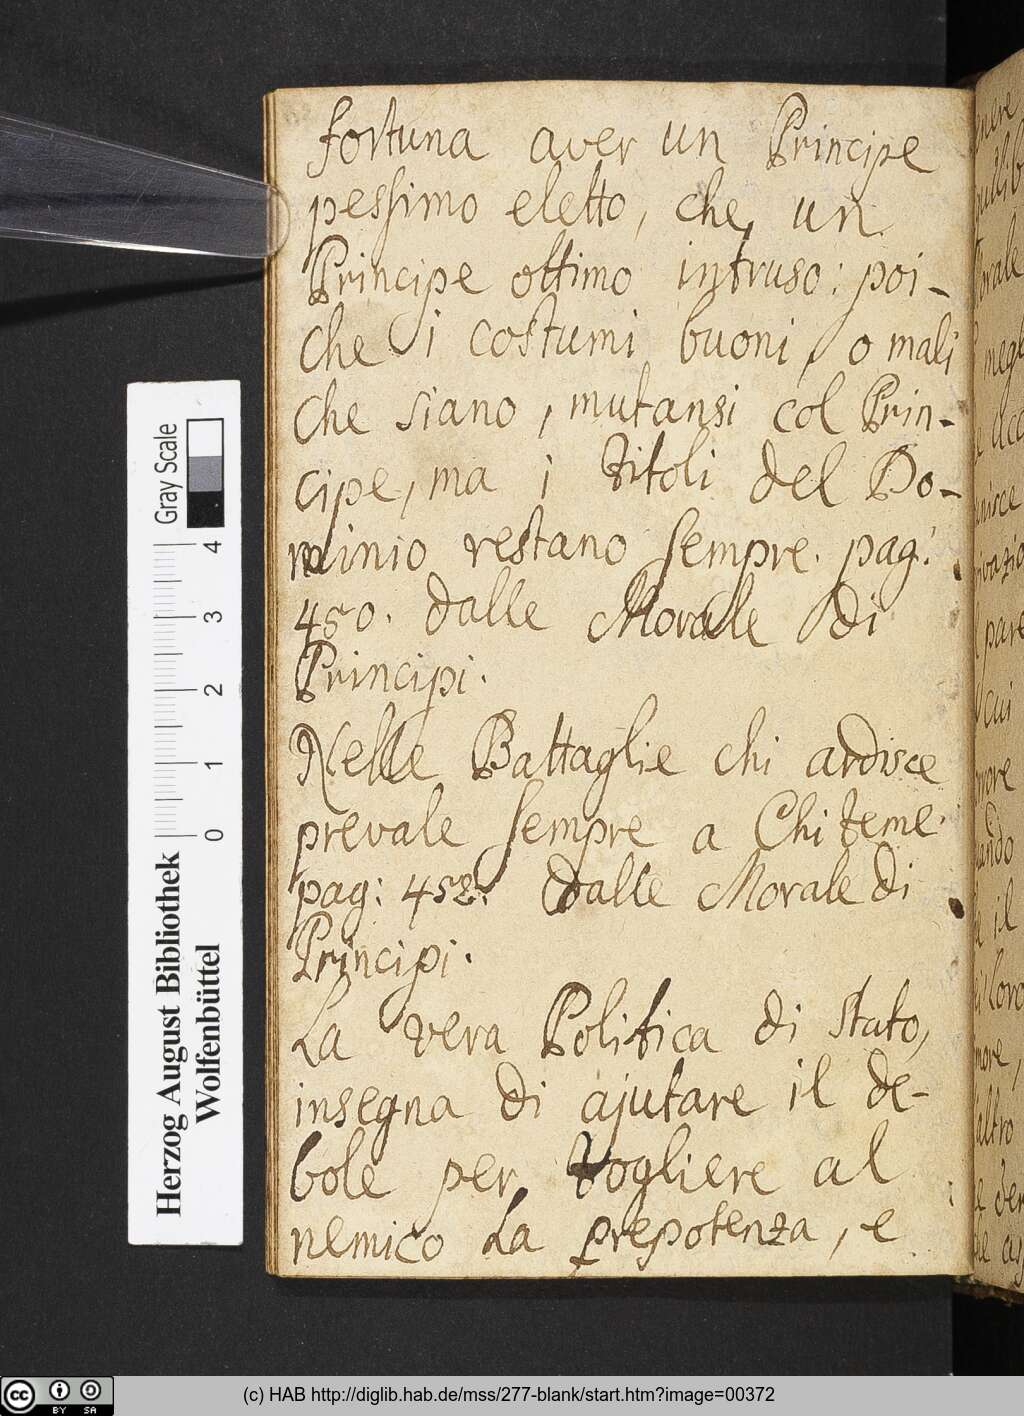 fortuna aver un Principe
pessimo eletto, che, un
Principe ottimo intruso: poi-
che i costumi buoni, o mali
che siano, mutansi col Prin-
cipe, ma i titoli del Do-
minio restano sempre. pag:
450. dalle Morale di
Principi.
Nelle Battaglie chi ardisce
prevale sempre a Chi teme.
pag: 452. dalle Morale di
Principi.
La vera Politica di stato,
insegna di ajutare il de-
bole per togliere al
nemico La prepotenza, e
Gray Scale
4
3
2
1
0
Herzog August Bibliothek
Wolfenbüttel
cc BY SA
(c) HAB http://diglib.hab.de/mss/277-blank/start.htm?image=00372